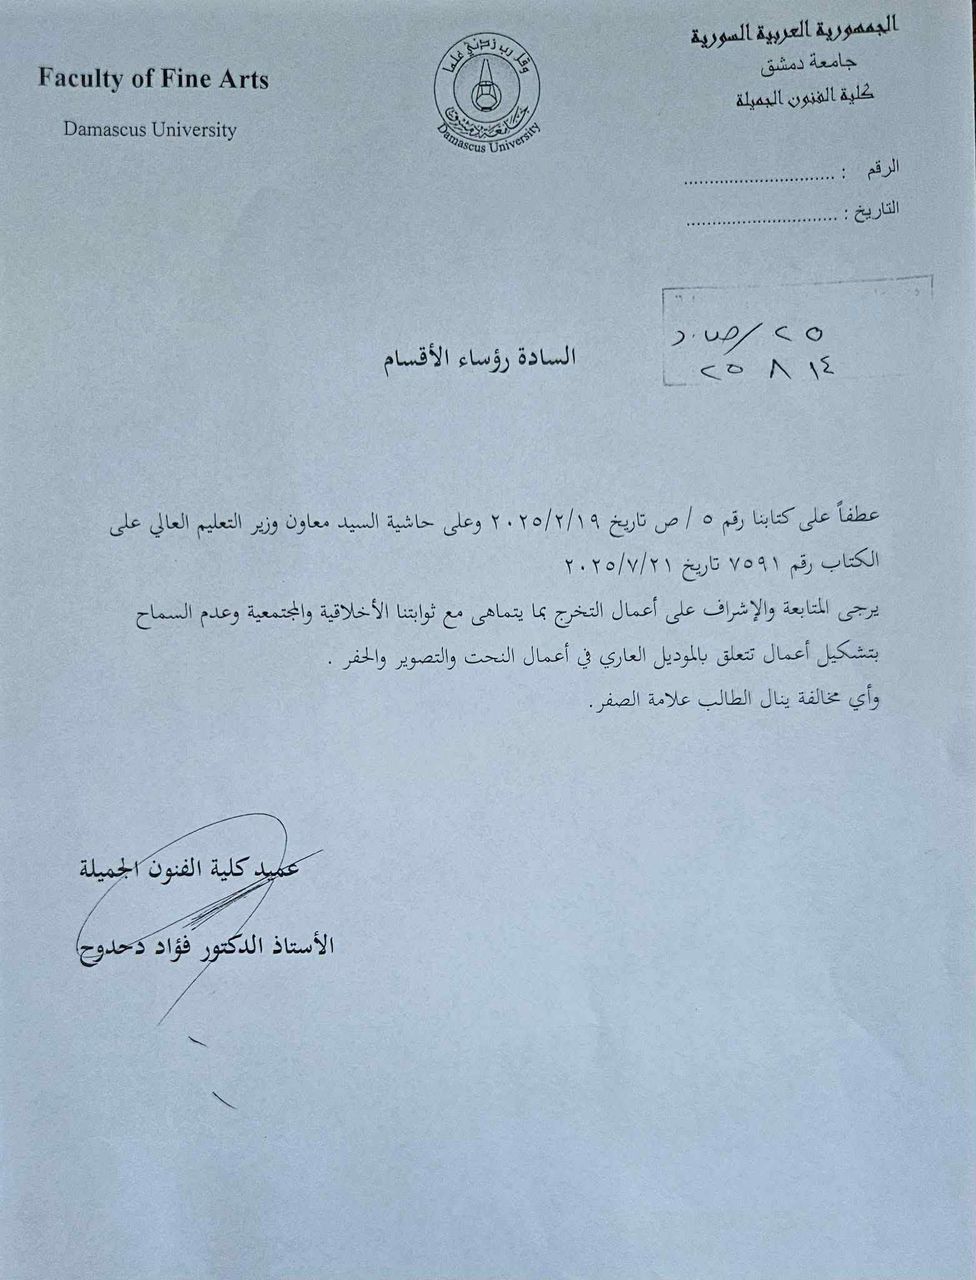 الجمهورية العربية السورية
جامعة دمشق
كلية الفنون الجميلة
Faculty of Fine Arts
Damascus University
وقل رب زدني علما
جامعة دمشق
Damascus University
الرقم : ..............................
التاريخ : ..............................
٢٥ /ص.د
١٤ ٨ ٢٥
السادة رؤساء الأقسام
عطفاً على كتابنا رقم ٥ / ص تاريخ ٢٠٢٥/٢/١٩ وعلى حاشية السيد معاون وزير التعليم العالي على
الكتاب رقم ٧٥٩١ تاريخ ٢٠٢٥/٧/٢١
يرجى المتابعة والإشراف على أعمال التخرج بما يتماهى مع ثوابتنا الأخلاقية والمجتمعية وعدم السماح
بتشكيل أعمال تتعلق بالموديل العاري في أعمال النحت والتصوير والحفر .
وأي مخالفة ينال الطالب علامة الصفر.
عميد كلية الفنون الجميلة
الأستاذ الدكتور فؤاد دحدوح